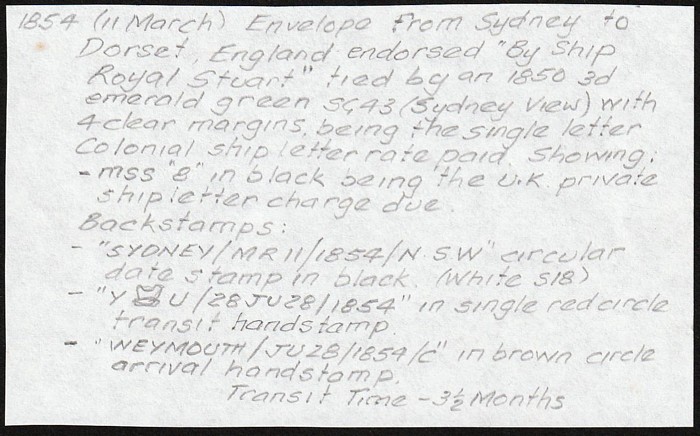 1854 (11 March) Envelope from Sydney to
Dorset, England endorsed "By Ship
Royal Stuart" tied by an 1850 3d
emerald green SG43 (Sydney View) with
4 clear margins, being the single letter
Colonial ship letter rate paid. Showing:
- mss "8" in black being the U.K. private
ship letter charge due.
Backstamps:
- "SYDNEY/MR 11/1854/N.S.W" circular
date stamp in black. (White S18)
- "Y U/28JU28/1854" in single red circle
transit handstamp.
- "WEYMOUTH/JU28/1854/C" in brown circle
arrival handstamp.
Transit Time - 3½ Months